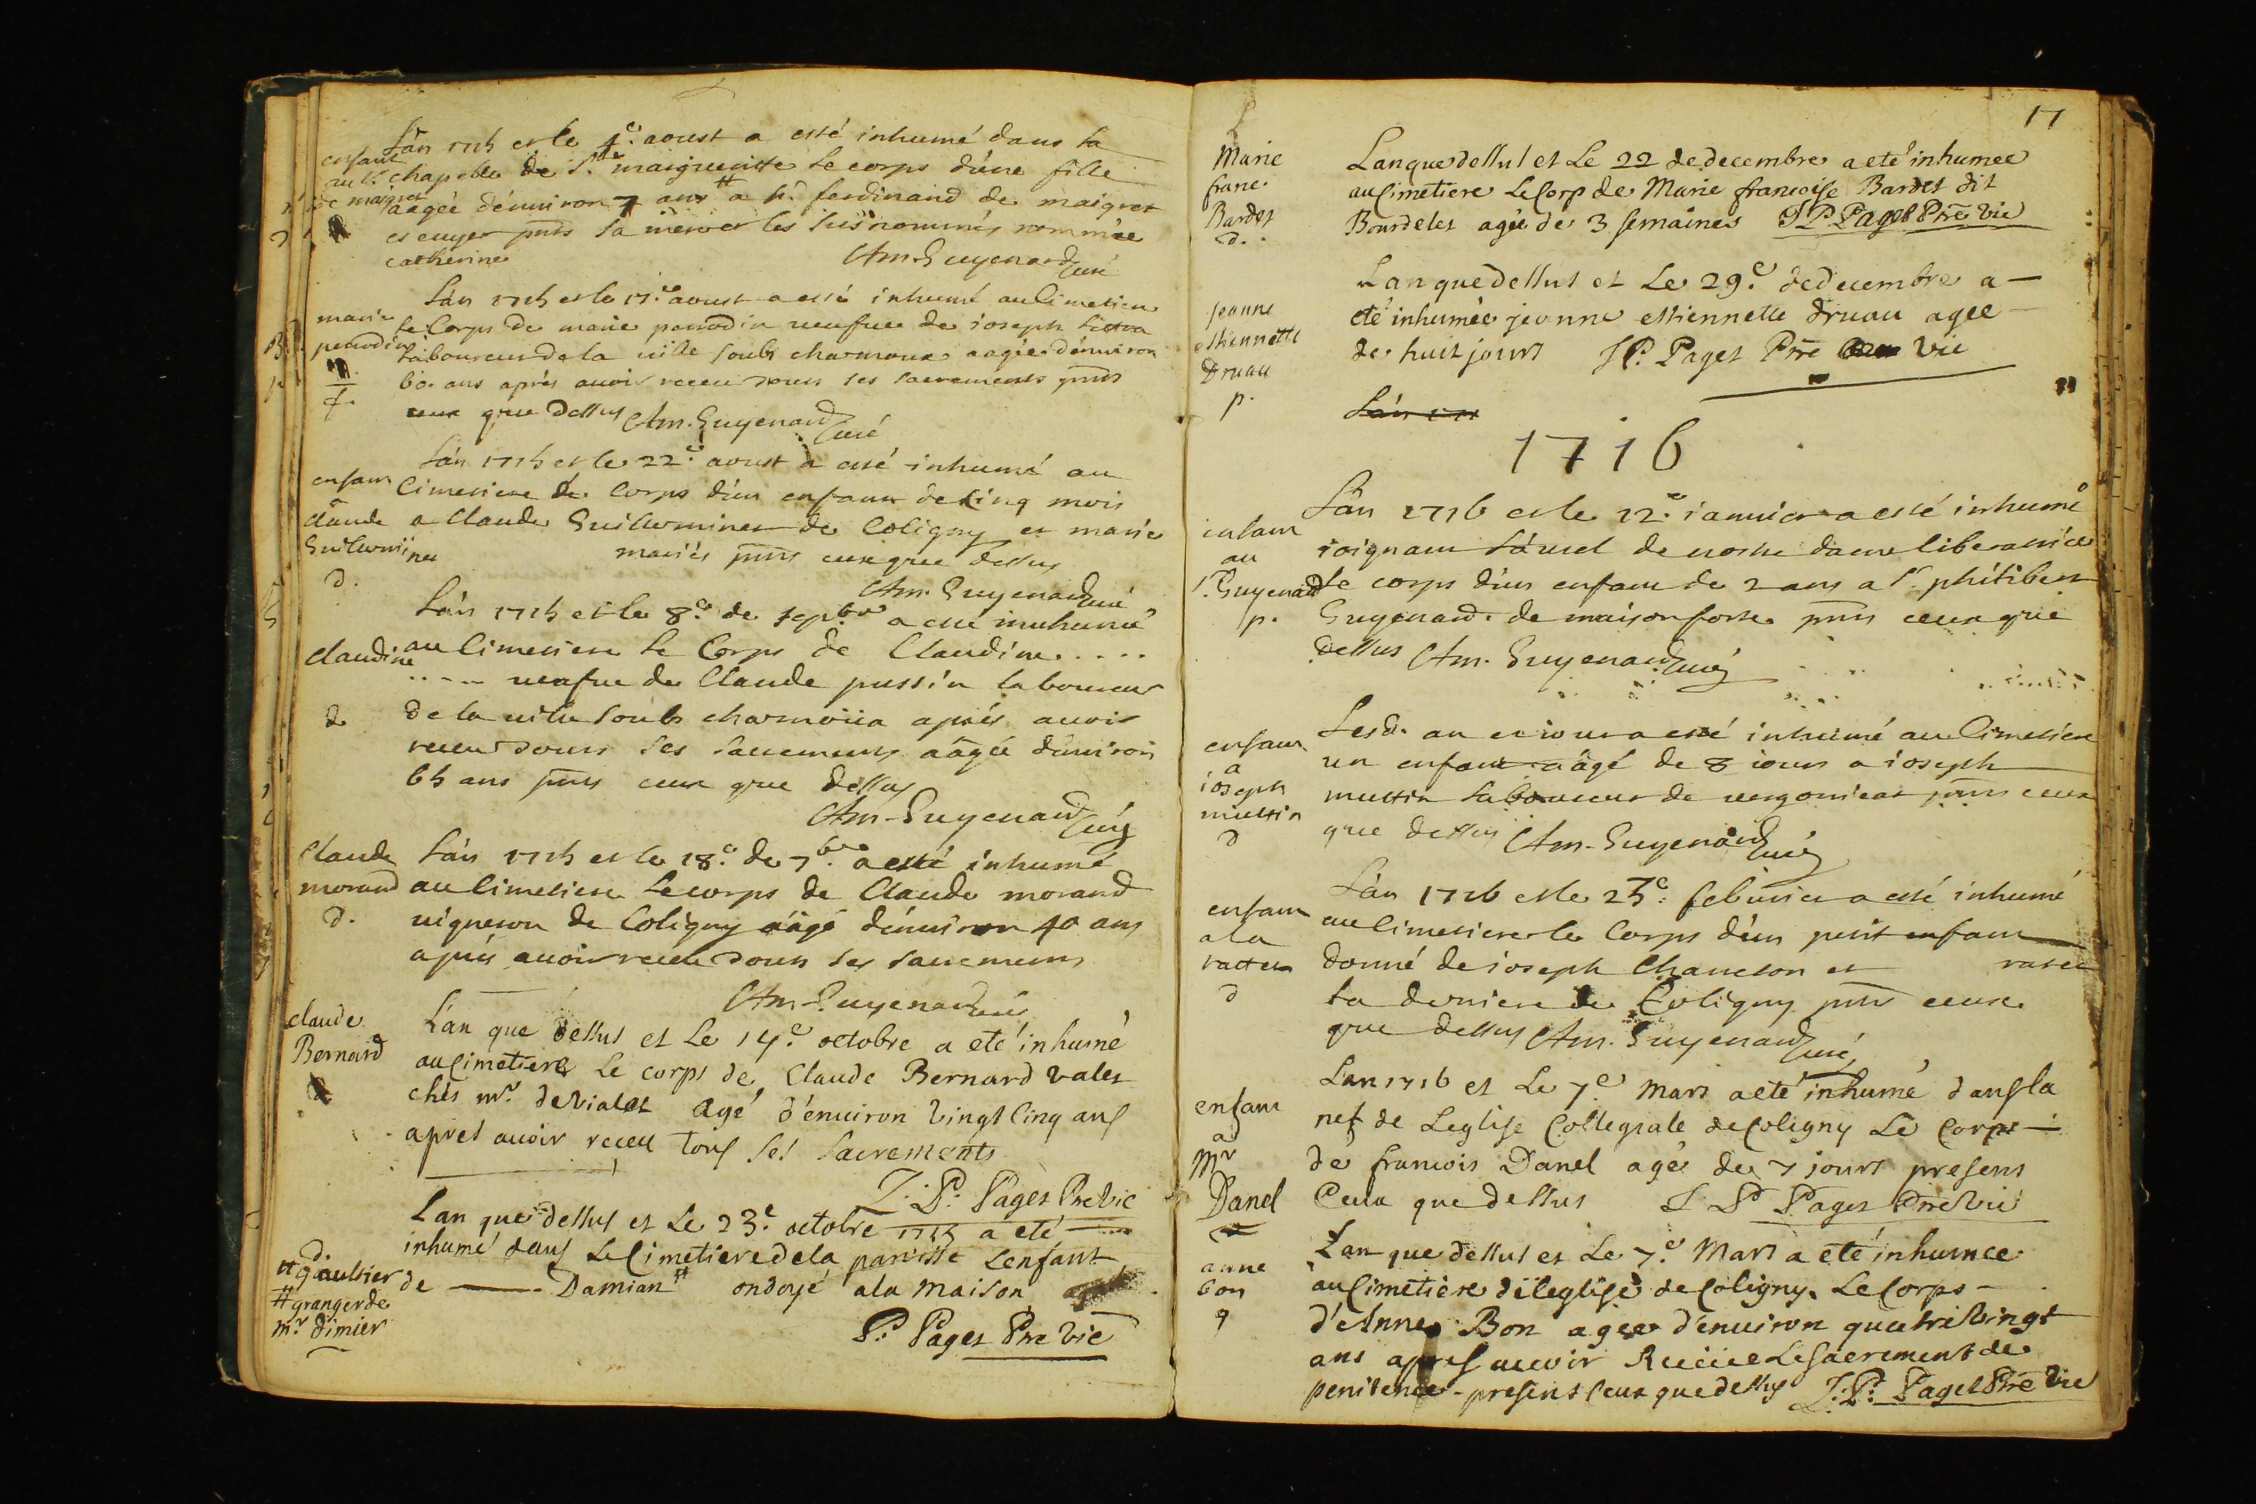 Lán 1715 et le 4e. aoust a esté inhumé dans la
enfant au sr. de maigret
chapelle de Ste. margueritte le corps dúne fille
aagée dénuiron 7 ans # a sr. ferdinand de maigret
escuyer pnts sa mère et les susnommés nommée
catherine Am. Guyenard curé
Lán 1715 et le 17e. aoust a esté inhumé au Cimetiere
marie perrodin
le Corps de marie perrodin ueufue de ioseph
laboureur de la uille soubs charmoux aagée dénuiron
60. ans aprés auoir receu tous ses sacrements pnts
ceux que dessus Am. Guyenard curé
Lán 1715 et le 22e. aoust a esté inhumé au
enfant a Claude Guillerminet
d.
Cimetiere le Corps dún enfant de Cinq mois
a Claude Guillerminet de Coligny et marie
mariés pnts ceux que dessus
Am. Guyenard curé
Lán 1715 et le 8e. de sepbre a esté inuhumé
Claudine
d
au Cimetiere le Corps de Claudine . . . . .
. . . . ueufue de Claude pussin laboureur
de la uille soubs charmoux aprés auoir
receu tous ses sacrements aâgée dénuiron
65 ans pnts ceux que dessus
Am. Guyenard curé
Claude morand
d.
Lán 1715 et le 18e. de 7bre. a esté inhumé
au Cimetiere le corps de Claude morand
uigneron de Coligny aâgé dénuiron 40 ans
aprés auoir receu tous ses sacrements
Am. Guyenard curé
claude Bernard
Lán que dessus et Le 14e. octobre a eté inhumé
au Cimetiere Le corps de Claude Bernard valet
chés mr. de vialet agé d'énuiron vingt Cinq ans
apres auoir receu tous ses sacrements
J: P: Paget Pre vic
Lan que dessus et Le 23e. octobre 1715 a eté
inhumé dans Le Cimetiere de la paroisse Lenfant
de ——— Damian # ondoyé a la maison
d.
# gaultier
# granger de
mr. dimier
P: Paget Pre vic
17
Marie franc. Bardet
d..
Lan que dessus et Le 22 de decembre a eté inhumee
au Cimetiere Le Corp de Marie francoise Bardet dit
Bourdelet agée de 3 semaines J P Paget Pre vic
Jeanne estiennette Druau
p.
Lan que dessus et Le 29e. de decembre a —
eté inhumée jeanne estiennette druau agee
de huit jours J P. Paget Pre vic
Lán 171
1716
Lán 1716 et le 12e. ianuier a esté inhumé
enfant au sr. Guyenard
p.
ioignant láutel de nostre dame liberatrice
le corps dún enfant de 2 ans a sr. philibert
Guyenard. de maisonforte. pnts ceux que
dessus Am. Guyenard curé
enfant a ioseph muttin
d
Lesd. an et iour a esté inhumé au Cimetiere
un enfant aâgé de 8 iours a ioseph
muttin laboureur de uergoniear pnts ceux
que dessus Am. Guyenard curé
Lán 1716 et le 23e. feburier a esté inhumé
enfant a la
d
au Cimetiere le Corps dún petit enfant
donné de ioseph Chancton et
la derniere de Coligny pnts ceux
que dessus Am. Guyenard curé
Lan 1716 et Le 7e. Mars a eté inhumé dans la
enfant a Mr Danel
nef de Leglise Collegiale de Coligny Le Corps —
de francois Danel agé de 7 jours presens
Ceux que dessus J P Paget Pre vic
Lan que dessus et Le 7e. Mars a eté inhumee
anne bon
au Cimetiere de Leglise de Coligny. Le Corps —
d'Anne Bon agée d'enuiron quatre vingt
ans apres auoir Receue Le sacrement de
penitence - presens ceux que dessus J: P: Paget Pre vic